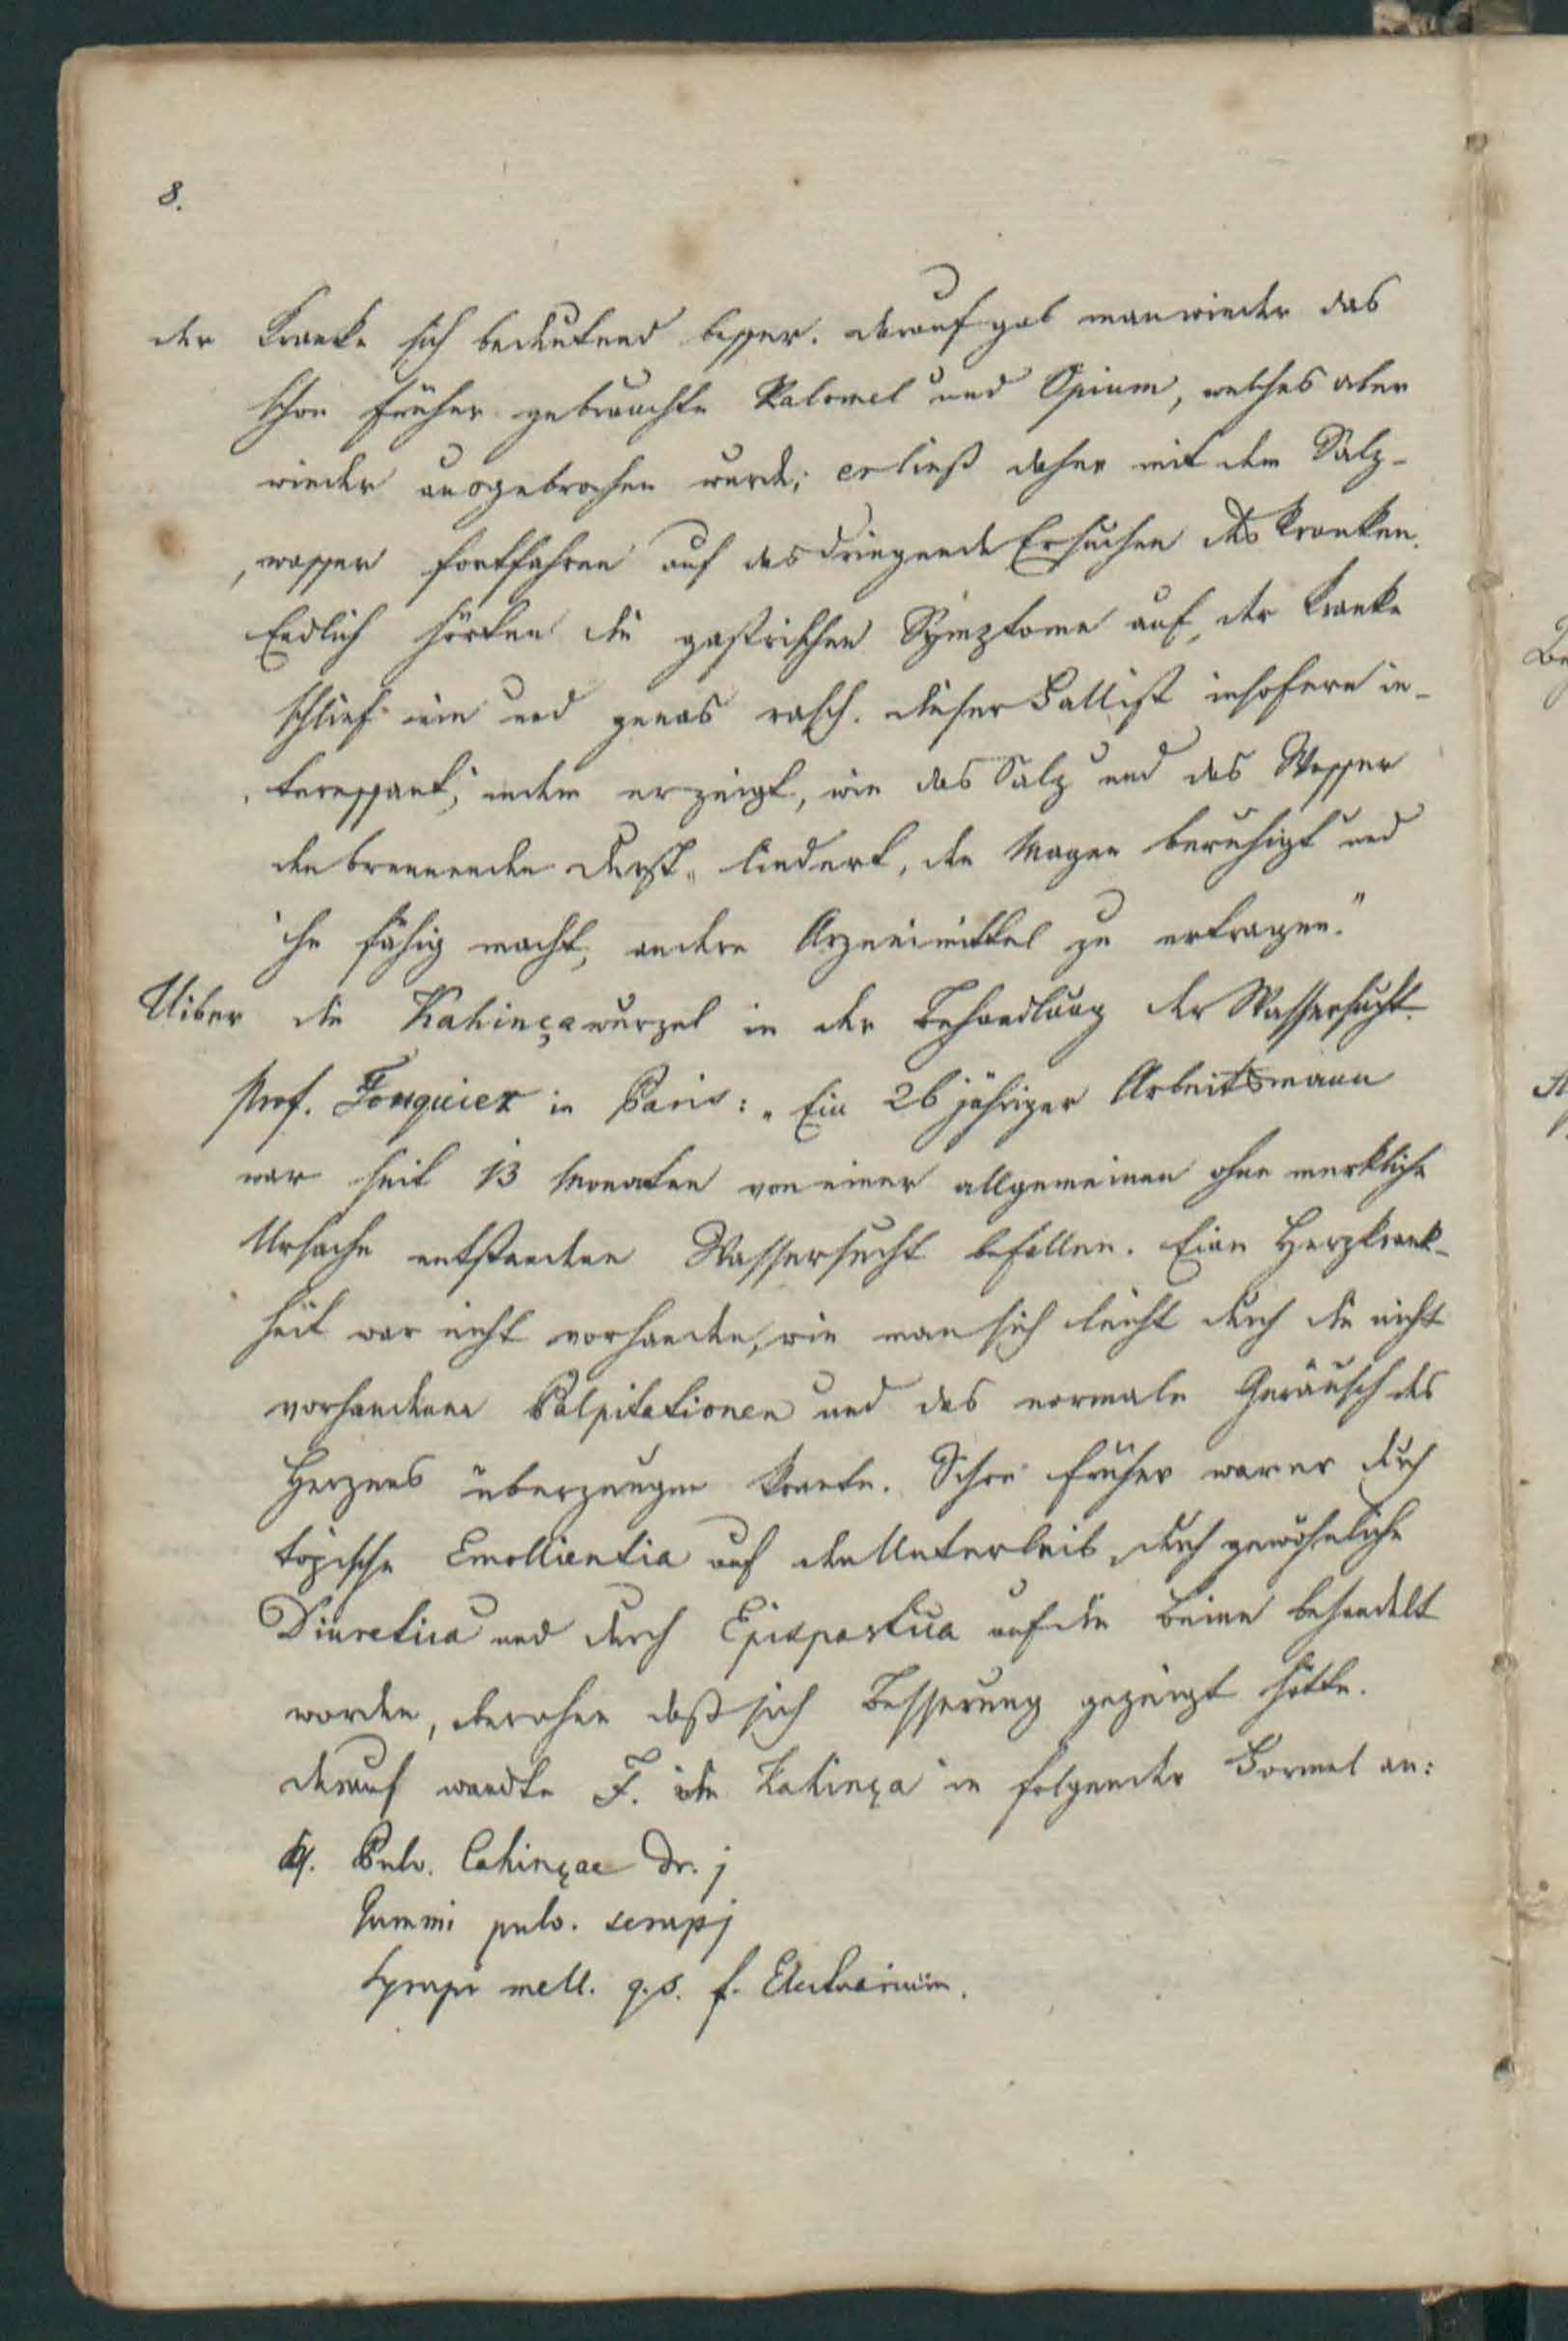 8.
der Kranke sich bedeutend besser. darauf gab man wieder das
schon früher gebrauchte Kalomel und Opium, welches aber
wieder ausgebrochen wurde; er ließ daher mit dem Salz-
wasser fortfahren auf das dringende Ersuchen des Kranken.
Endlich hörten die gastrischen Symptome auf, der Kranke
schlief ein und genas rasch. dieser Fall ist insofern in-
teressant, indem er zeigt, wie das Salz und das Wasser
den brennenden Durst lindert, den Magen beruhigt und
ihn fähig macht, andere Arzneimittel zu ertragen."
Uiber die Kahinçawurzel in der Behandlung der Wassersucht.
Prof. Fouquier in Paris: „Ein 26jähriger Arbeitsmann
war seit 13 Monaten von einer allgemeinen ohne merkliche
Ursache entstandenen Wassersucht befallen. Eine Herzkrank-
heit war nicht vorhanden, wie man sich leicht durch die nicht
vorhandenen Palpitationen und das normale Geräusch des
Herzens überzeugen konnte. Schon früher war er durch
topische Emollientia auf den Unterleib, durch gewöhnliche
Diuretica und durch Epispastica auf die Beine behandelt
worden, aber ohne daß sich Besserung gezeigt hätte.
darauf wandte F. die Kahinça in folgender Formel an:
Rp. Pulv. Cahinçae Dr. j
Gummi pulv. scrup j
Syrupi mell. q.s. f. Electuarium.